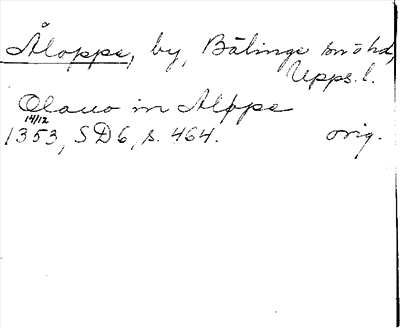 Åloppe, by, Bälinge sn o hd,
Upps. l.
Olauo in Alppe
14/12
1353, SD 6, s. 464. orig.